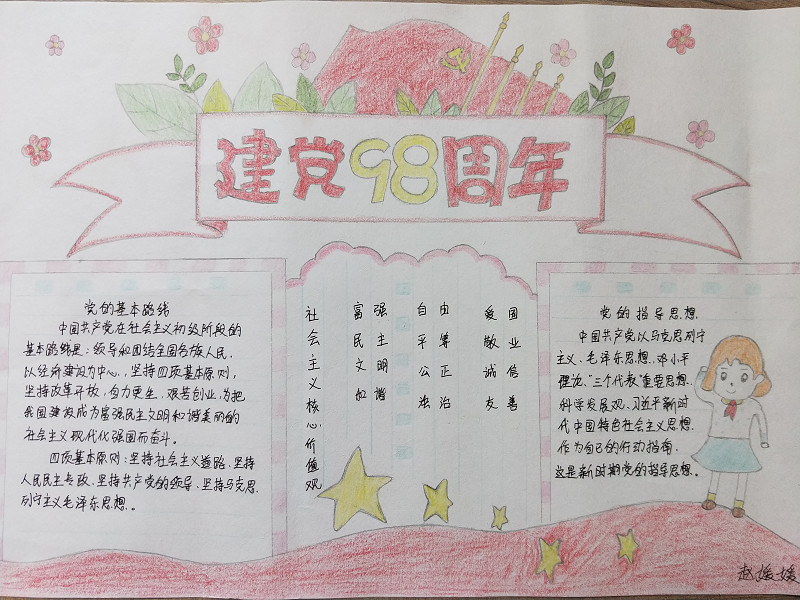 建党98周年
党的基本路线
中国共产党在社会主义初级阶段的
基本路线是：领导和团结全国各族人民，
以经济建设为中心，坚持四项基本原则，
坚持改革开放，自力更生，艰苦创业，为把
我国建设成为富强民主文明和谐美丽的
社会主义现代化强国而奋斗。
四项基本原则：坚持社会主义道路、坚持
人民民主专政、坚持共产党的领导、坚持马克思
列宁主义毛泽东思想。
社会主义核心价值观
富强
民主
文明
和谐
自由
平等
公正
法治
爱国
敬业
诚信
友善
党的指导思想
中国共产党以马克思列宁
主义、毛泽东思想、邓小平
理论、"三个代表"重要思想、
科学发展观、习近平新时
代中国特色社会主义思想
作为自己的行动指南，
这是新时期党的指导思想。
赵媛媛